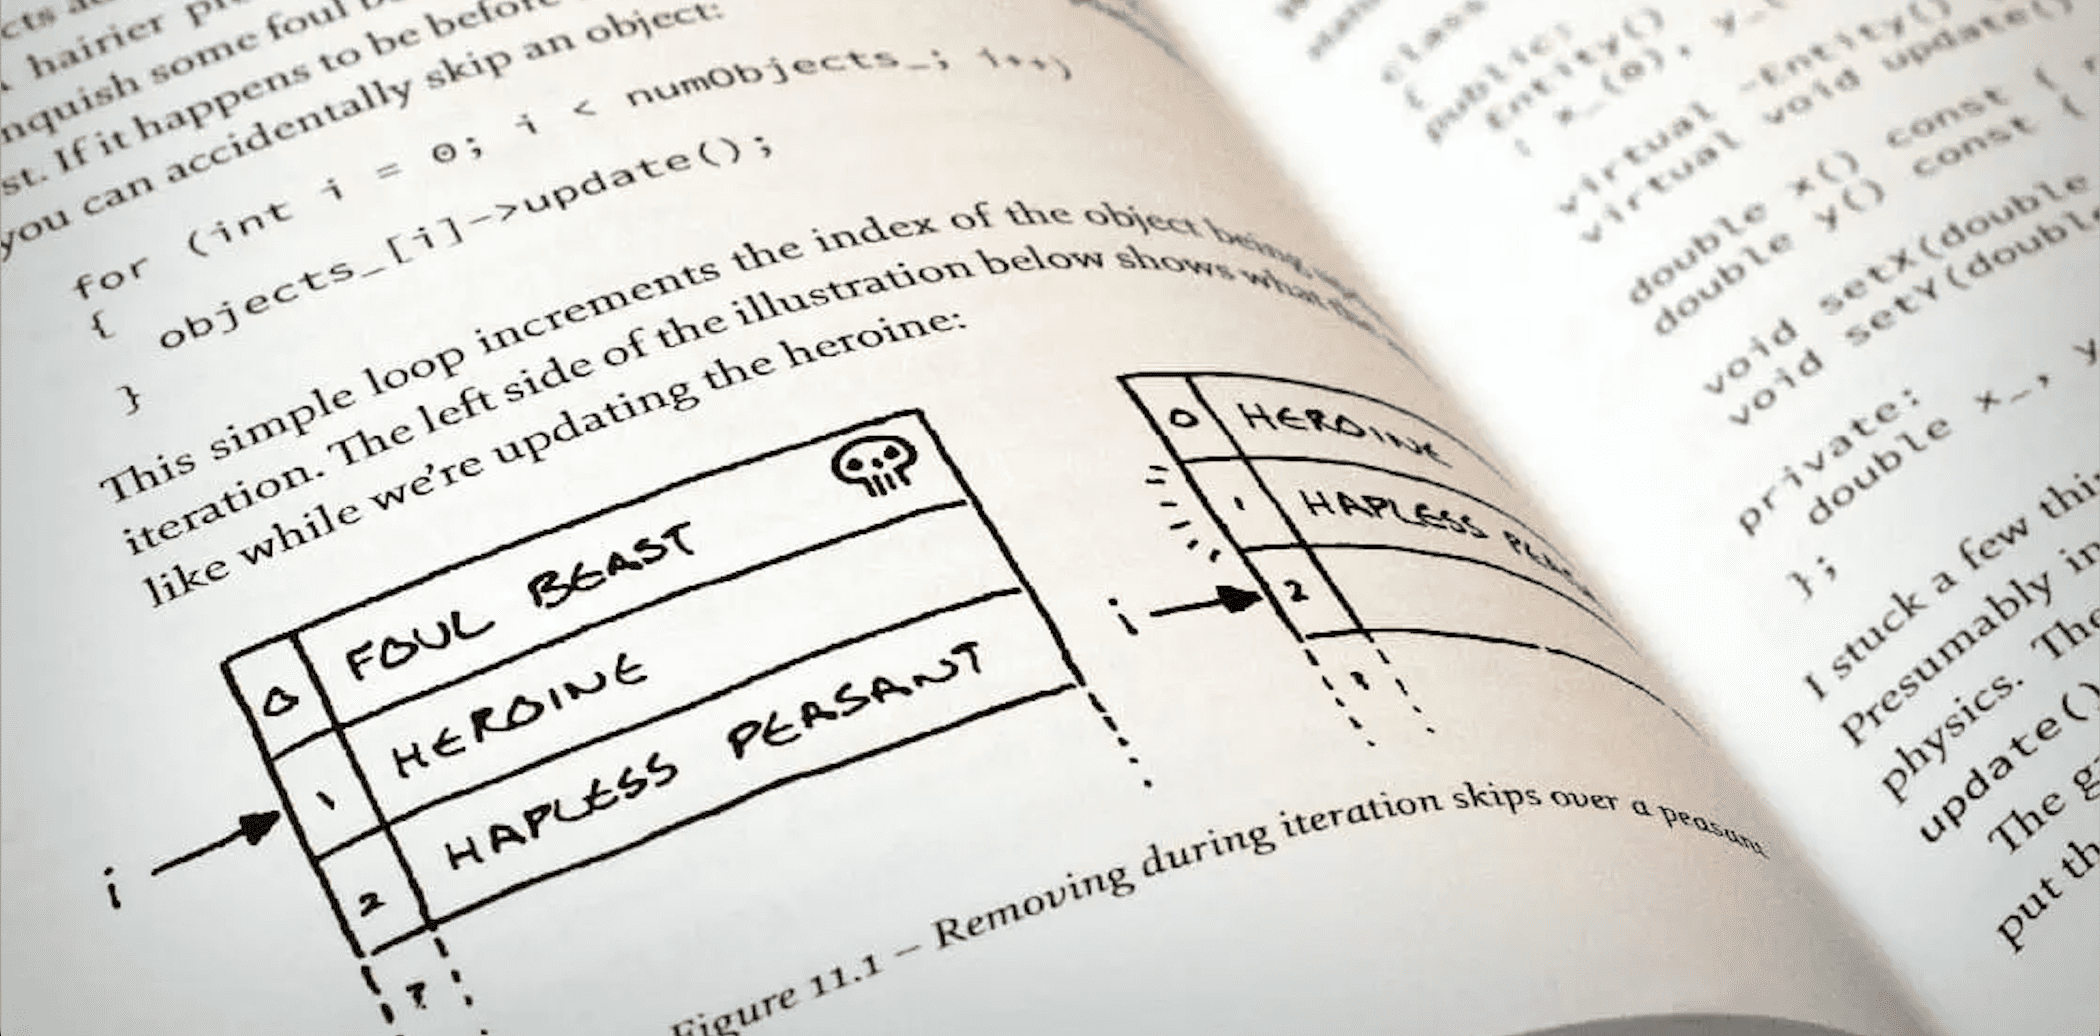 hairier
nquish some foul
st. If it happens to be before
you can accidentally skip an object:
for (int i = 0; i < numObjects_; i++)
{
objects_[i]->update();
}
This simple loop increments the index of the object being
iteration. The left side of the illustration below shows what the
like while we're updating the heroine:
0 FOUL BEAST
1 HEROINE
2 HAPLESS PEASANT
i
?
0 HEROINE
1 HAPLESS
2
i
Figure 11.1 – Removing during iteration skips over a peasant
class
{
public:
Entity()
: x_(0), y_(
virtual ~Entity()
virtual void update()
double x() const {
double y() const {
void setX(double
void setY(double
private:
double x_, y
};
I stuck a few
Presumably in
physics. The
update()
The
put th